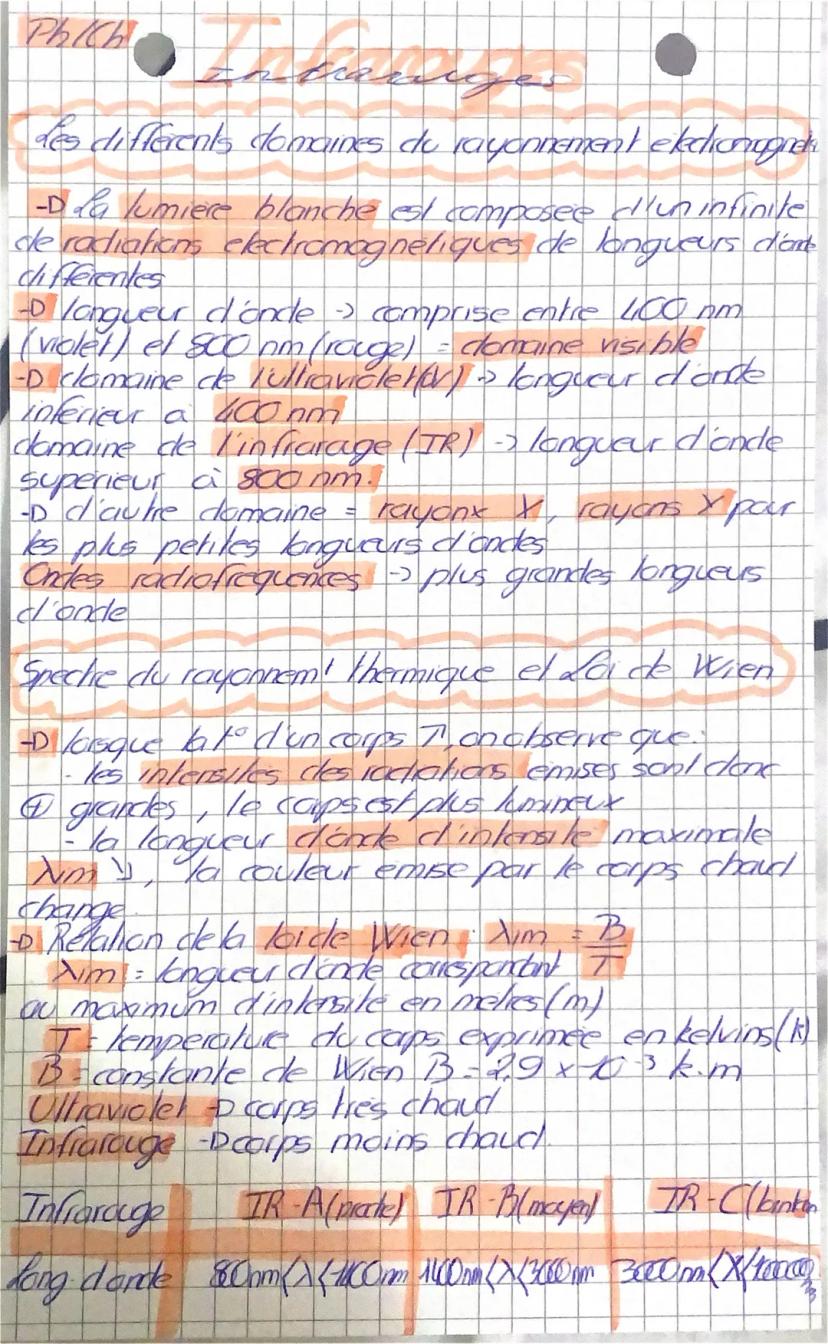 Ph/Ch
Infrarouges
Infrarouges
Les différents domaines du rayonnement électromagnét
-D La lumière blanche est composée d'un infinité
de radiations électromagnétiques de longueurs d'onde
différentes
-D longueur d'onde -> comprise entre 400 nm
(violet) et 800 nm (rouge) = domaine visible
-D domaine de l'ultraviolet (UV) -> longueur d'onde
inférieur à 400 nm
domaine de l'infrarage (IR) -> longueur d'onde
supérieur à 800 nm.
-D d'autre domaine = rayonx X, rayons γ pour
les plus petites longueurs d'ondes
Ondes radiofréquences -> plus grandes longueurs
d'onde
Spectre du rayonnem' thermique et Loi de Wien
-D lorsque la t° d'un corps ↗, on observe que :
- les intensités des radiations émises sont donc
⊕ grandes, le corps est plus lumineux
- la longueur d'onde d'intensité maximale
λm ↘, la couleur émise par le corps chaud
change.
-D Relation de la loi de Wien : λm = B/T
λm = longueur d'onde correspondant
au maximum d'intensité en mètres (m)
T = température du corps exprimée en kelvins (K)
B = constante de Wien B = 2,9 x 10⁻³ k.m
Ultraviolet -D corps très chaud
Infrarouge -D corps moins chaud.
Infrarouge IR-A (proche) IR-B (moyen) IR-C (lointain
Long. d'onde 800nm<λ<1400nm 1400nm<λ<3000nm 3000nm<λ<